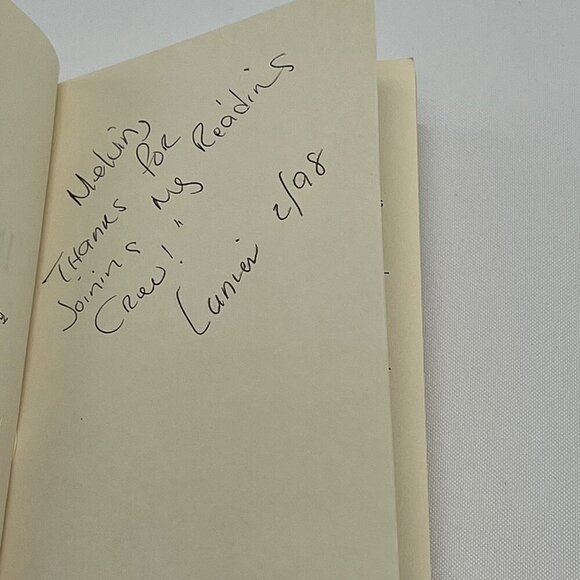 Melvin,
Thanks for
Joining My Reading
Crew!"
Lanier 2/98